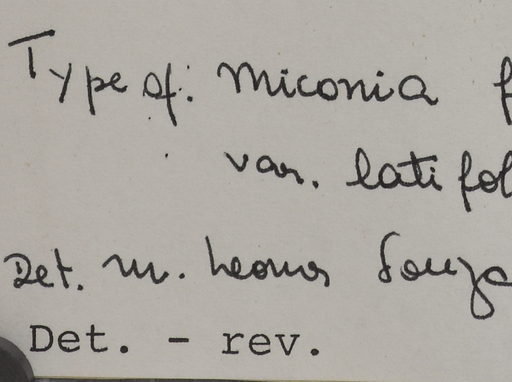 Type of: Miconia f
var. latifol
Det. M. Leonor Souza
Det. - rev.